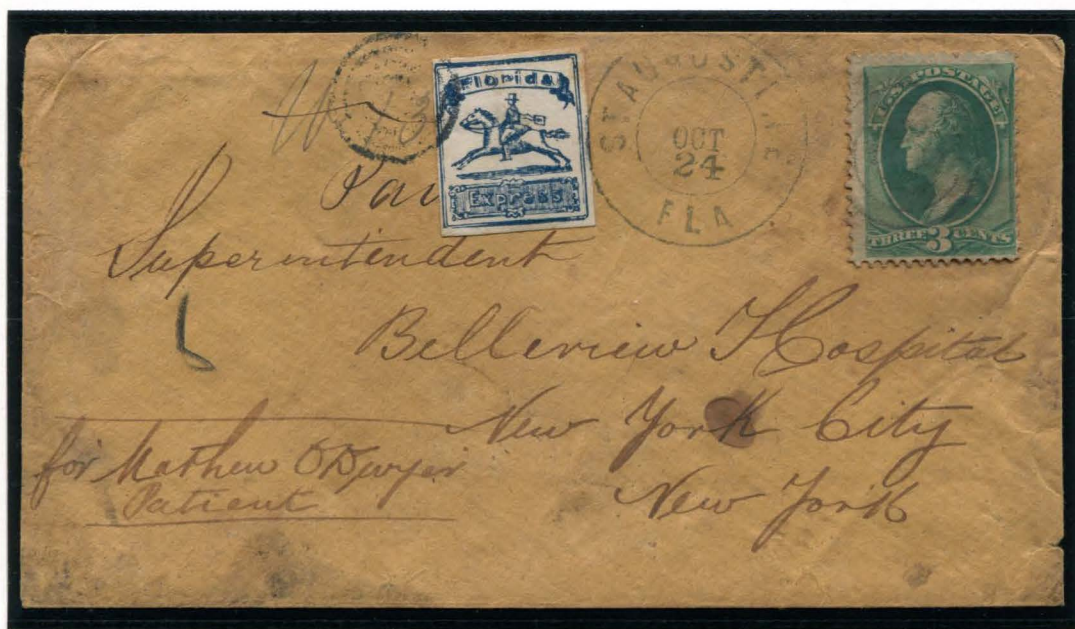 Florida
Express
ST. AUGUSTINE
OCT
24
FLA
U.S. POSTAGE
THREE 3 CENTS
Superintendent
Belleview Hospital
New York City
New York
for Mathew O Dwyer
Patient